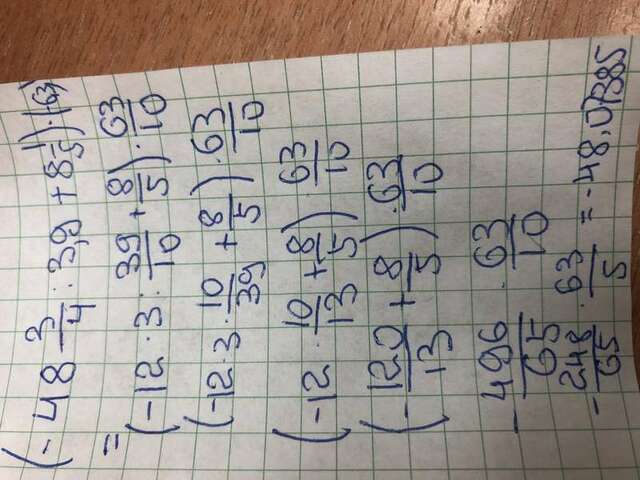 (-48 3/4 : 3,9 + 8 1/5) · (-63)
=
(-12 · 3 : 39/10 + 8/5) · 63/10
(-12 · 3 · 10/39 + 8/5) · 63/10
(-12 · 10/13 + 8/5) · 63/10
(-120/13 + 8/5) · 63/10
-496/65 · 63/10
-248/65 · 63/5 = -48,07385